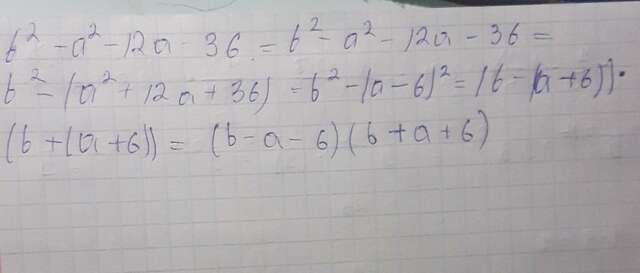 b² - a² - 12a - 36 = b² - a² - 12a - 36 =
b² - (a² + 12a + 36) = b² - (a - 6)² = (b - (a + 6))·
(b + (a + 6)) = (b - a - 6)(b + a + 6)